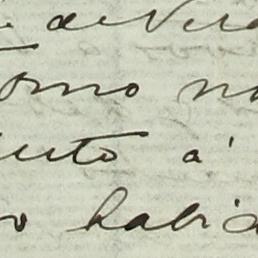 de Ver
omo no
uto á
o habi